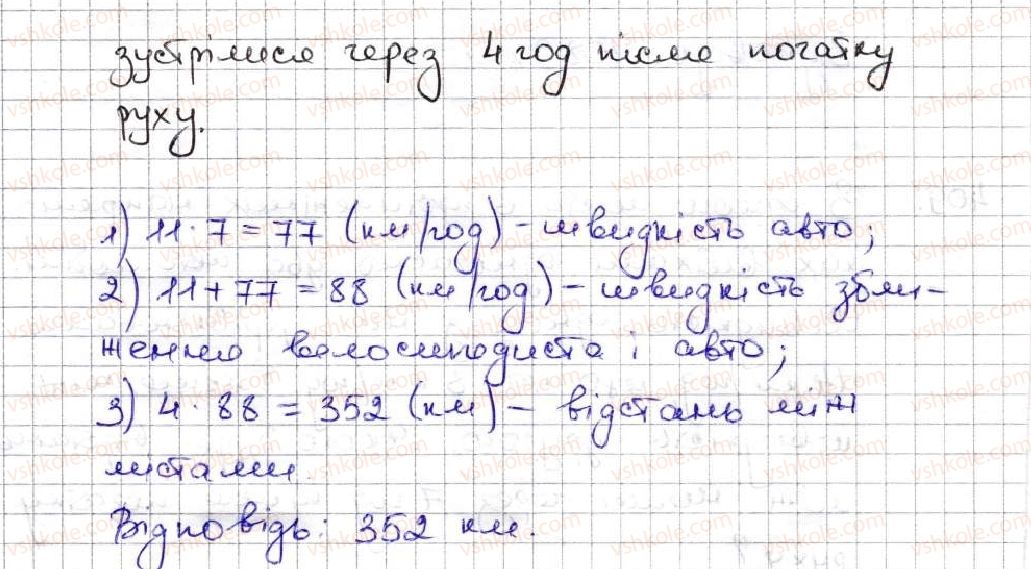 зустрілися через 4 год після початку
руху.
1) 11 · 7 = 77 (км/год) – швидкість авто;
2) 11 + 77 = 88 (км/год) – швидкість збли-
ження велосиподиста і авто;
3) 4 · 88 = 352 (км) – відстань між
містами.
Відповідь: 352 км.